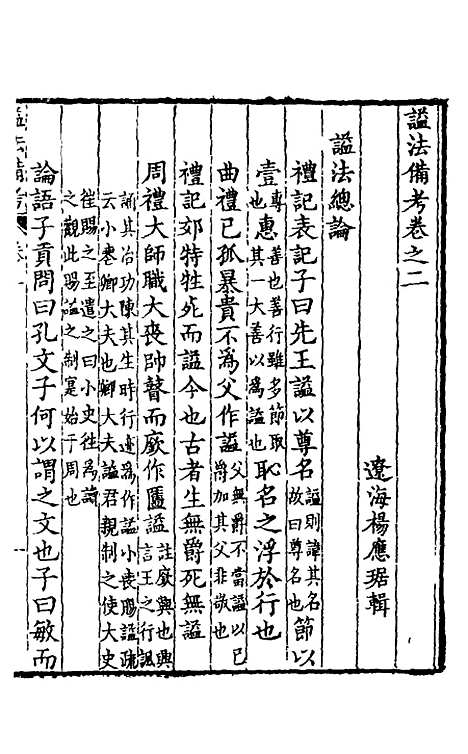 諡法備考卷之二
遼海楊應琚輯
諡法總論
禮記表記子曰先王諡以尊名諡則諱其名故曰尊名也節以
壹惠善也善行雖多節取其一大善以為諡也恥名之浮於行也
曲禮已孤暴貴不為父作諡父無爵不當諡以己爵加其父非敬也
禮記郊特牲死而諡今也古者生無爵死無諡
周禮大師職大喪帥瞽而廞作匶諡註廞興也興言王之行諷
誦其治功陳其生時行迹為作諡小喪賜諡疏
云小喪卿大夫也卿大夫諡君親制之使大史
往賜之至遣之曰小史往為讀
之觀此賜諡之制寔始于周也
論語子貢問曰孔文子何以謂之文也子曰敏而